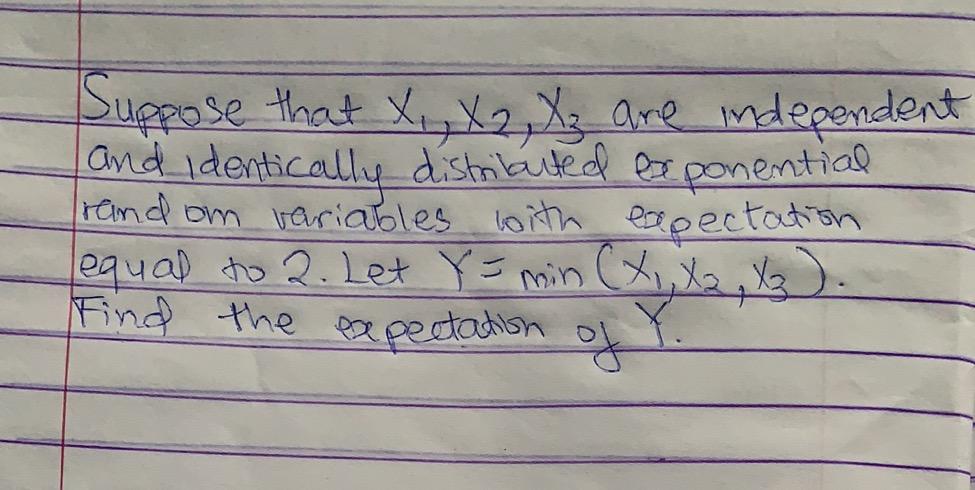 Suppose that X₁, X₂, X₃ are independent
and identically distributed exponential
random variables with expectation
equal to 2. Let Y = min (X₁, X₂, X₃).
Find the expectation of Y.